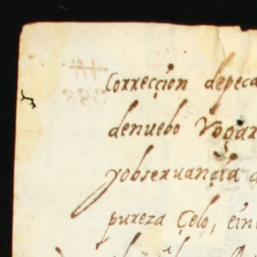 Correccion depeca
denuebo Rogar
yobseruancia d
pureza Çelo, ein